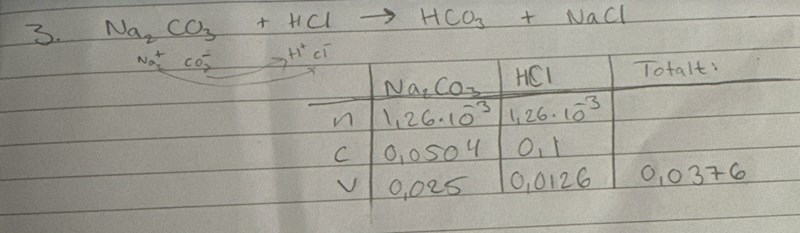 3. Na₂CO₃ + HCl → HCO₃ + NaCl
Na₂⁺ CO₃⁻ H⁺ Cl⁻
Na₂CO₃ HCl Totalt:
n 1,26·10⁻³ 1,26·10⁻³
C 0,0504 0,1
V 0,025 0,0126 0,0376